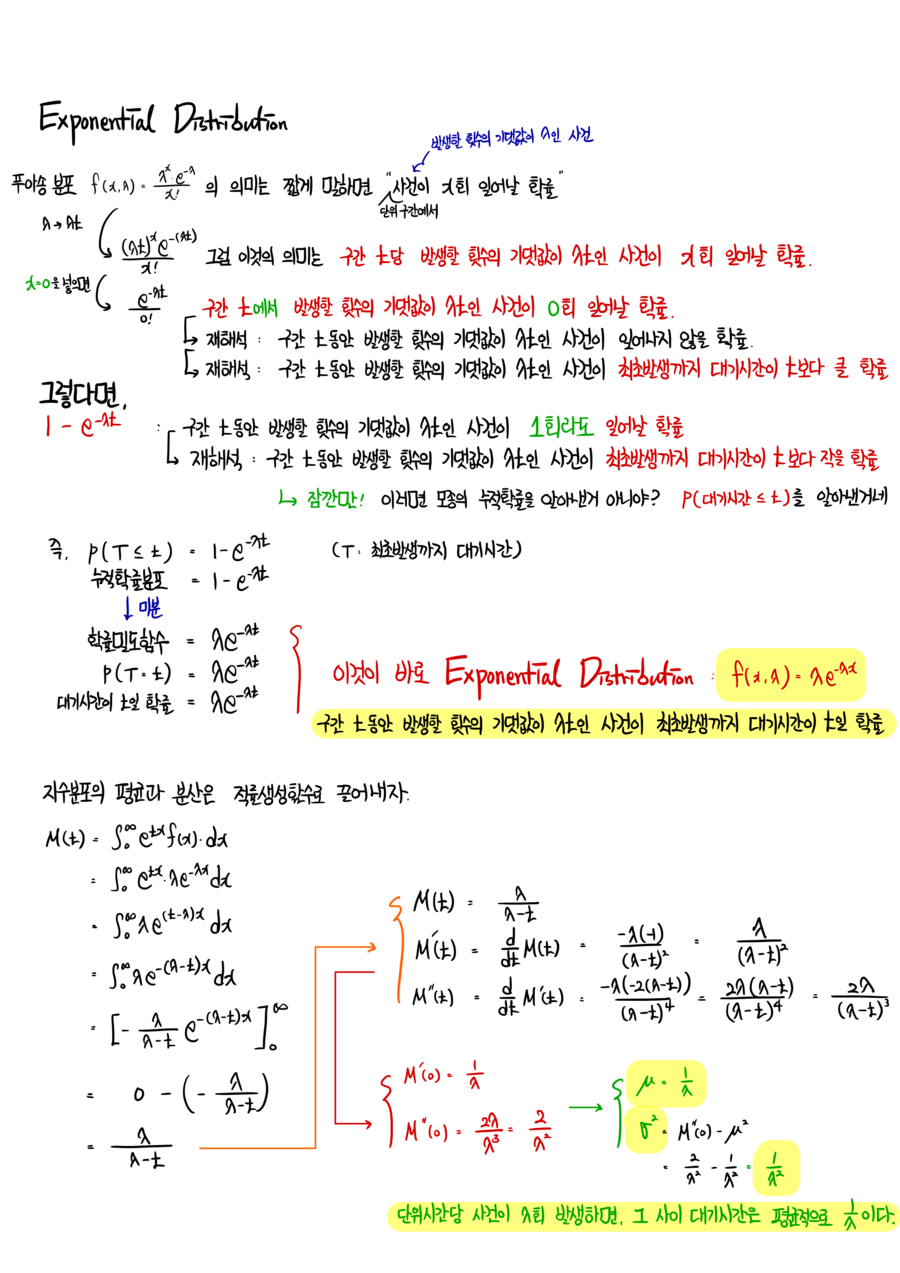 Exponential Distribution
발생할 횟수의 기댓값이 λ인 사건
푸아송 분포 f(x,λ) = λˣ·e^-λ / x! 의 의미는 짧게 말하면 "사건이 x회 일어날 확률"
단위구간에서
λ→λt
(λt)ˣe^-(λt) / x! 그럼 이것의 의미는 구간 t당 발생할 횟수의 기댓값이 λt인 사건이 x회 일어날 확률.
x=0을 넣으면
e^-λt / 0! 구간 t에서 발생할 횟수의 기댓값이 λt인 사건이 0회 일어날 확률.
↳ 재해석 : 구간 t동안 발생할 횟수의 기댓값이 λt인 사건이 일어나지 않을 확률.
↳ 재해석 : 구간 t동안 발생할 횟수의 기댓값이 λt인 사건이 최초발생까지 대기시간이 t보다 클 확률
그렇다면,
1 - e^-λt : 구간 t동안 발생할 횟수의 기댓값이 λt인 사건이 1회라도 일어날 확률
↳ 재해석 : 구간 t동안 발생할 횟수의 기댓값이 λt인 사건이 최초발생까지 대기시간이 t보다 작을 확률
↳ 잠깐만! 이러면 모종의 누적확률을 알아낸거 아니야? P(대기시간 ≤ t)를 알아낸거네
즉, P(T ≤ t) = 1-e^-λt (T: 최초발생까지 대기시간)
누적확률분포 = 1-e^-λt
↓ 미분
확률밀도함수 = λe^-λt
P(T=t) = λe^-λt
대기시간이 t일 확률 = λe^-λt
이것이 바로 Exponential Distribution : f(x,λ) = λe^-λx
구간 t동안 발생할 횟수의 기댓값이 λt인 사건이 최초발생까지 대기시간이 t일 확률
지수분포의 평균과 분산은 적률생성함수로 끌어내자.
M(t) = ∫₀^∞ e^tx f(x)·dx
= ∫₀^∞ e^tx·λe^-λx dx
= ∫₀^∞ λe^(t-λ)x dx
= ∫₀^∞ λe^-(λ-t)x dx
= [-λ/(λ-t) e^-(λ-t)x]₀^∞
= 0 - (-λ/(λ-t))
= λ/(λ-t)
M(t) = λ/(λ-t)
M'(t) = d/dt M(t) = -λ(-1)/(λ-t)² = λ/(λ-t)²
M''(t) = d/dt M'(t) = -λ(-2(λ-t))/(λ-t)⁴ = 2λ(λ-t)/(λ-t)⁴ = 2λ/(λ-t)³
M'(0) = 1/λ
M''(0) = 2λ/λ³ = 2/λ²
μ = 1/λ
σ² = M''(0) - μ²
= 2/λ² - 1/λ² = 1/λ²
단위시간당 사건이 λ회 발생하면, 그 사이 대기시간은 평균적으로 1/λ이다.